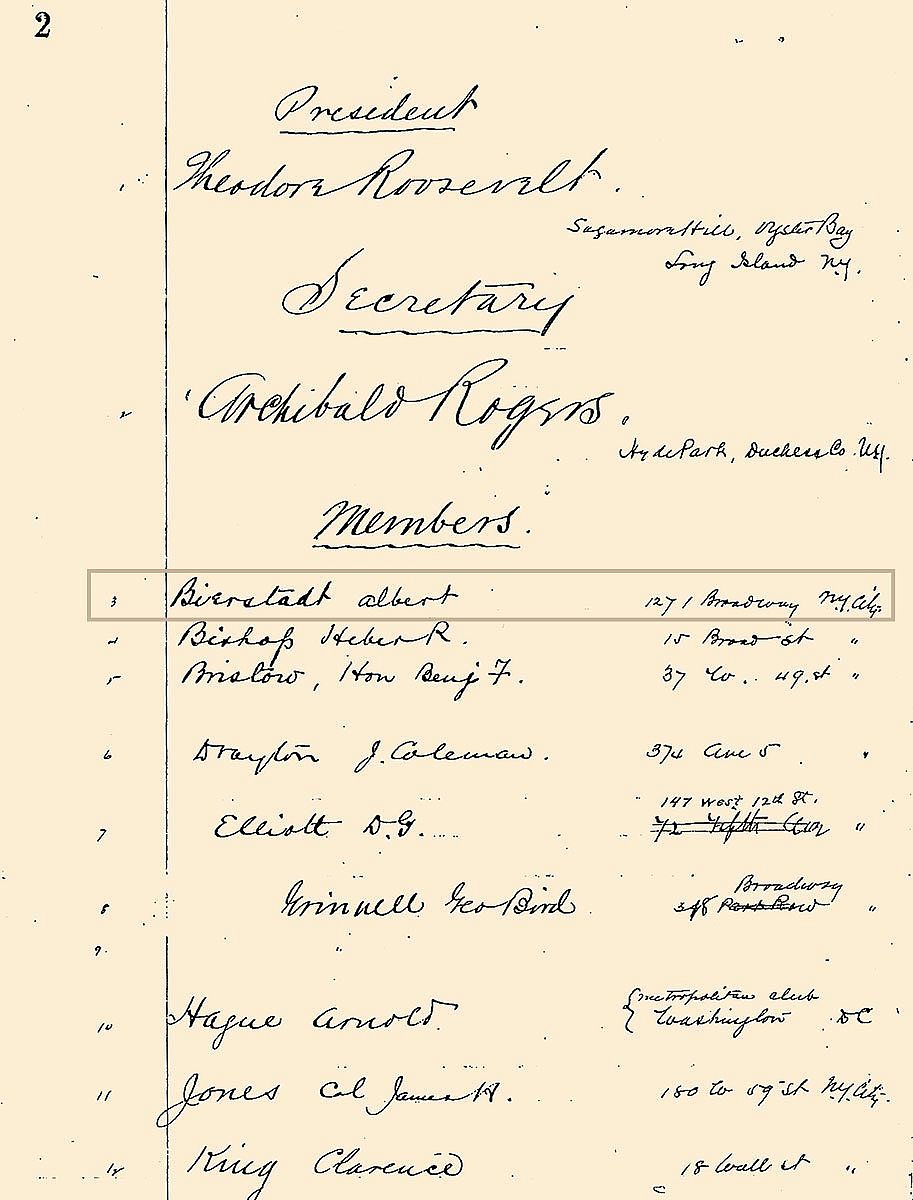 2
President
1 Theodore Roosevelt.
Sagamore Hill, Oyster Bay
Long Island N.Y.
Secretary
2 Archibald Rogers.
Hyde Park, Duchess Co. N.Y.
Members.
3 Bierstadt Albert 1271 Broadway N.Y. City
4 Bishop Heber R. 15 Broad St "
5 Bristow, Hon Benj F. 37 W. 49. st "
6 Drayton J. Coleman. 374 Ave 5 "
147 West 12th St.
7 Elliott D.G. 72 Fifth Ave "
Broadway
8 Grinnell Geo Bird Park Row "
9. "
Metropolitan Club
10 Hague Arnold. Washington DC
11 Jones Col James H. 180 W 59 St N.Y. City.
12 King Clarence 18 Wall st "